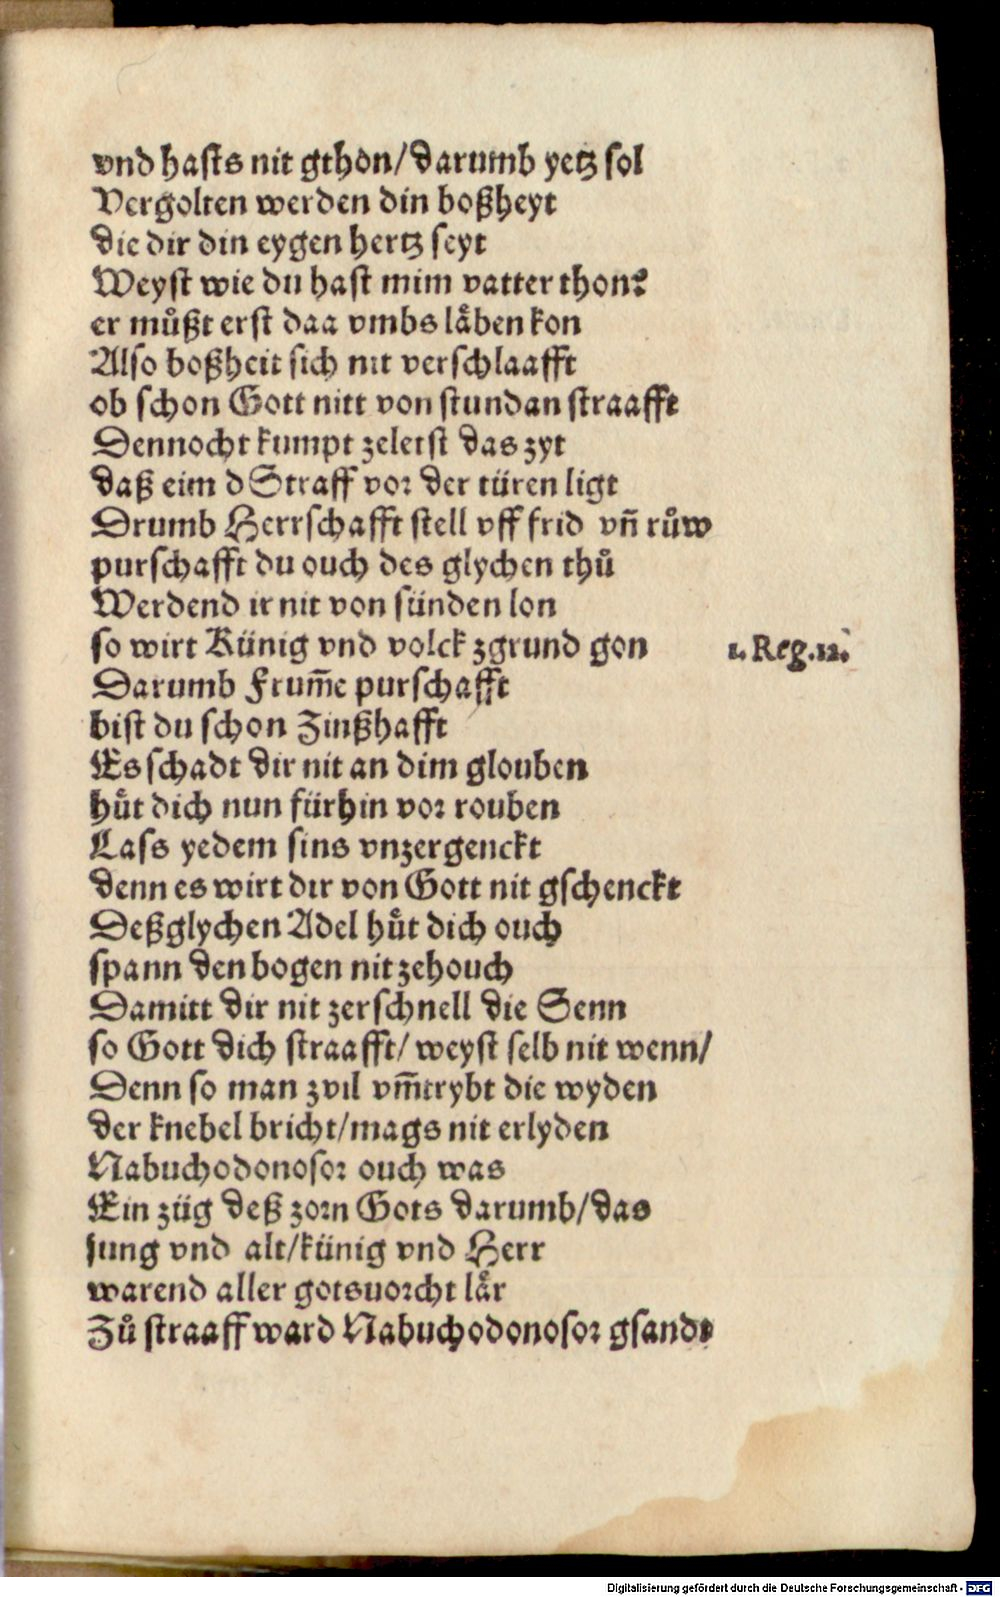 vnd hasts nit gthon/darumb yetz sol
Vergolten werden din boßheyt
die dir din eygen hertz seyt
Weyst wie du hast mim vatter thon?
er můßt erst daa vmbs låben kon
Also boßheit sich nit verschlaafft
ob schon Gott nitt von stundan straafft
Dennocht kumpt zeletst das zyt
daß eim d Straff vor der türen ligt
Drumb Herrschafft stell vff frid vn̄ růw
purschafft du ouch des glychen thů
Werdend ir nit von sünden lon
so wirt Künig vnd volck zgrund gon
1. Reg. 12.
Darumb Frum̄e purschafft
bist du schon Zinßhafft
Es schadt dir nit an dim glouben
hůt dich nun fürhin vor rouben
Lass yedem sins vnzergenckt
denn es wirt dir von Gott nit gschenckt
Deßglychen Adel hůt dich ouch
spann den bogen nit zehouch
Damitt dir nit zerschnell die Senn
so Gott dich straafft/ weyst selb nit wenn/
Denn so man zvil vm̄trybt die wyden
der knebel bricht/mags nit erlyden
Nabuchodonosor ouch was
Ein züg deß zorn Gots darumb/das
jung vnd alt/künig vnd Herr
warend aller gotsuorcht lår
Zů straaff ward Nabuchodonosor gsandt
Digitalisierung gefördert durch die Deutsche Forschungsgemeinschaft - DFG